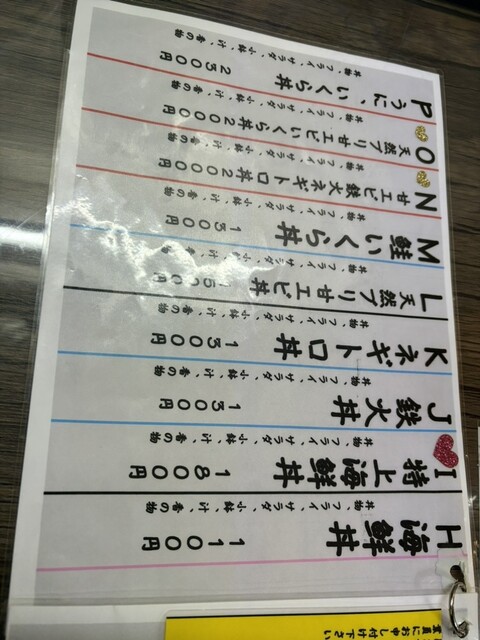 員にお申し付け下さい
H 海鮮丼 1100円
丼物、フライ、サラダ、小鉢、汁、香の物
I 特上海鮮丼 1800円
丼物、フライ、サラダ、小鉢、汁、香の物
J 鉄火丼 1300円
丼物、フライ、サラダ、小鉢、汁、香の物
K ネギトロ丼 1300円
丼物、フライ、サラダ、小鉢、汁、香の物
L 天然ブリ甘エビ丼 1500円
丼物、フライ、サラダ、小鉢、汁、香の物
M 鮭いくら丼 1500円
丼物、フライ、サラダ、小鉢、汁、香の物
N 甘エビ鉄火ネギトロ丼 2000円
丼物、フライ、サラダ、小鉢、汁、香の物
O 天然ブリ甘エビいくら丼 2000円
丼物、フライ、サラダ、小鉢、汁、香の物
P うに、いくら丼 2300円
丼物、フライ、サラダ、小鉢、汁、香の物